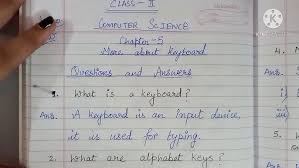 CLASS - II
COMPUTER SCIENCE
Chapter-5
More about keyboard
Questions and Answers
1. What is a keyboard?
Ans. A keyboard is an input device,
it is used for typing.
2. What are alphabet keys?
4.
Ans.
5.